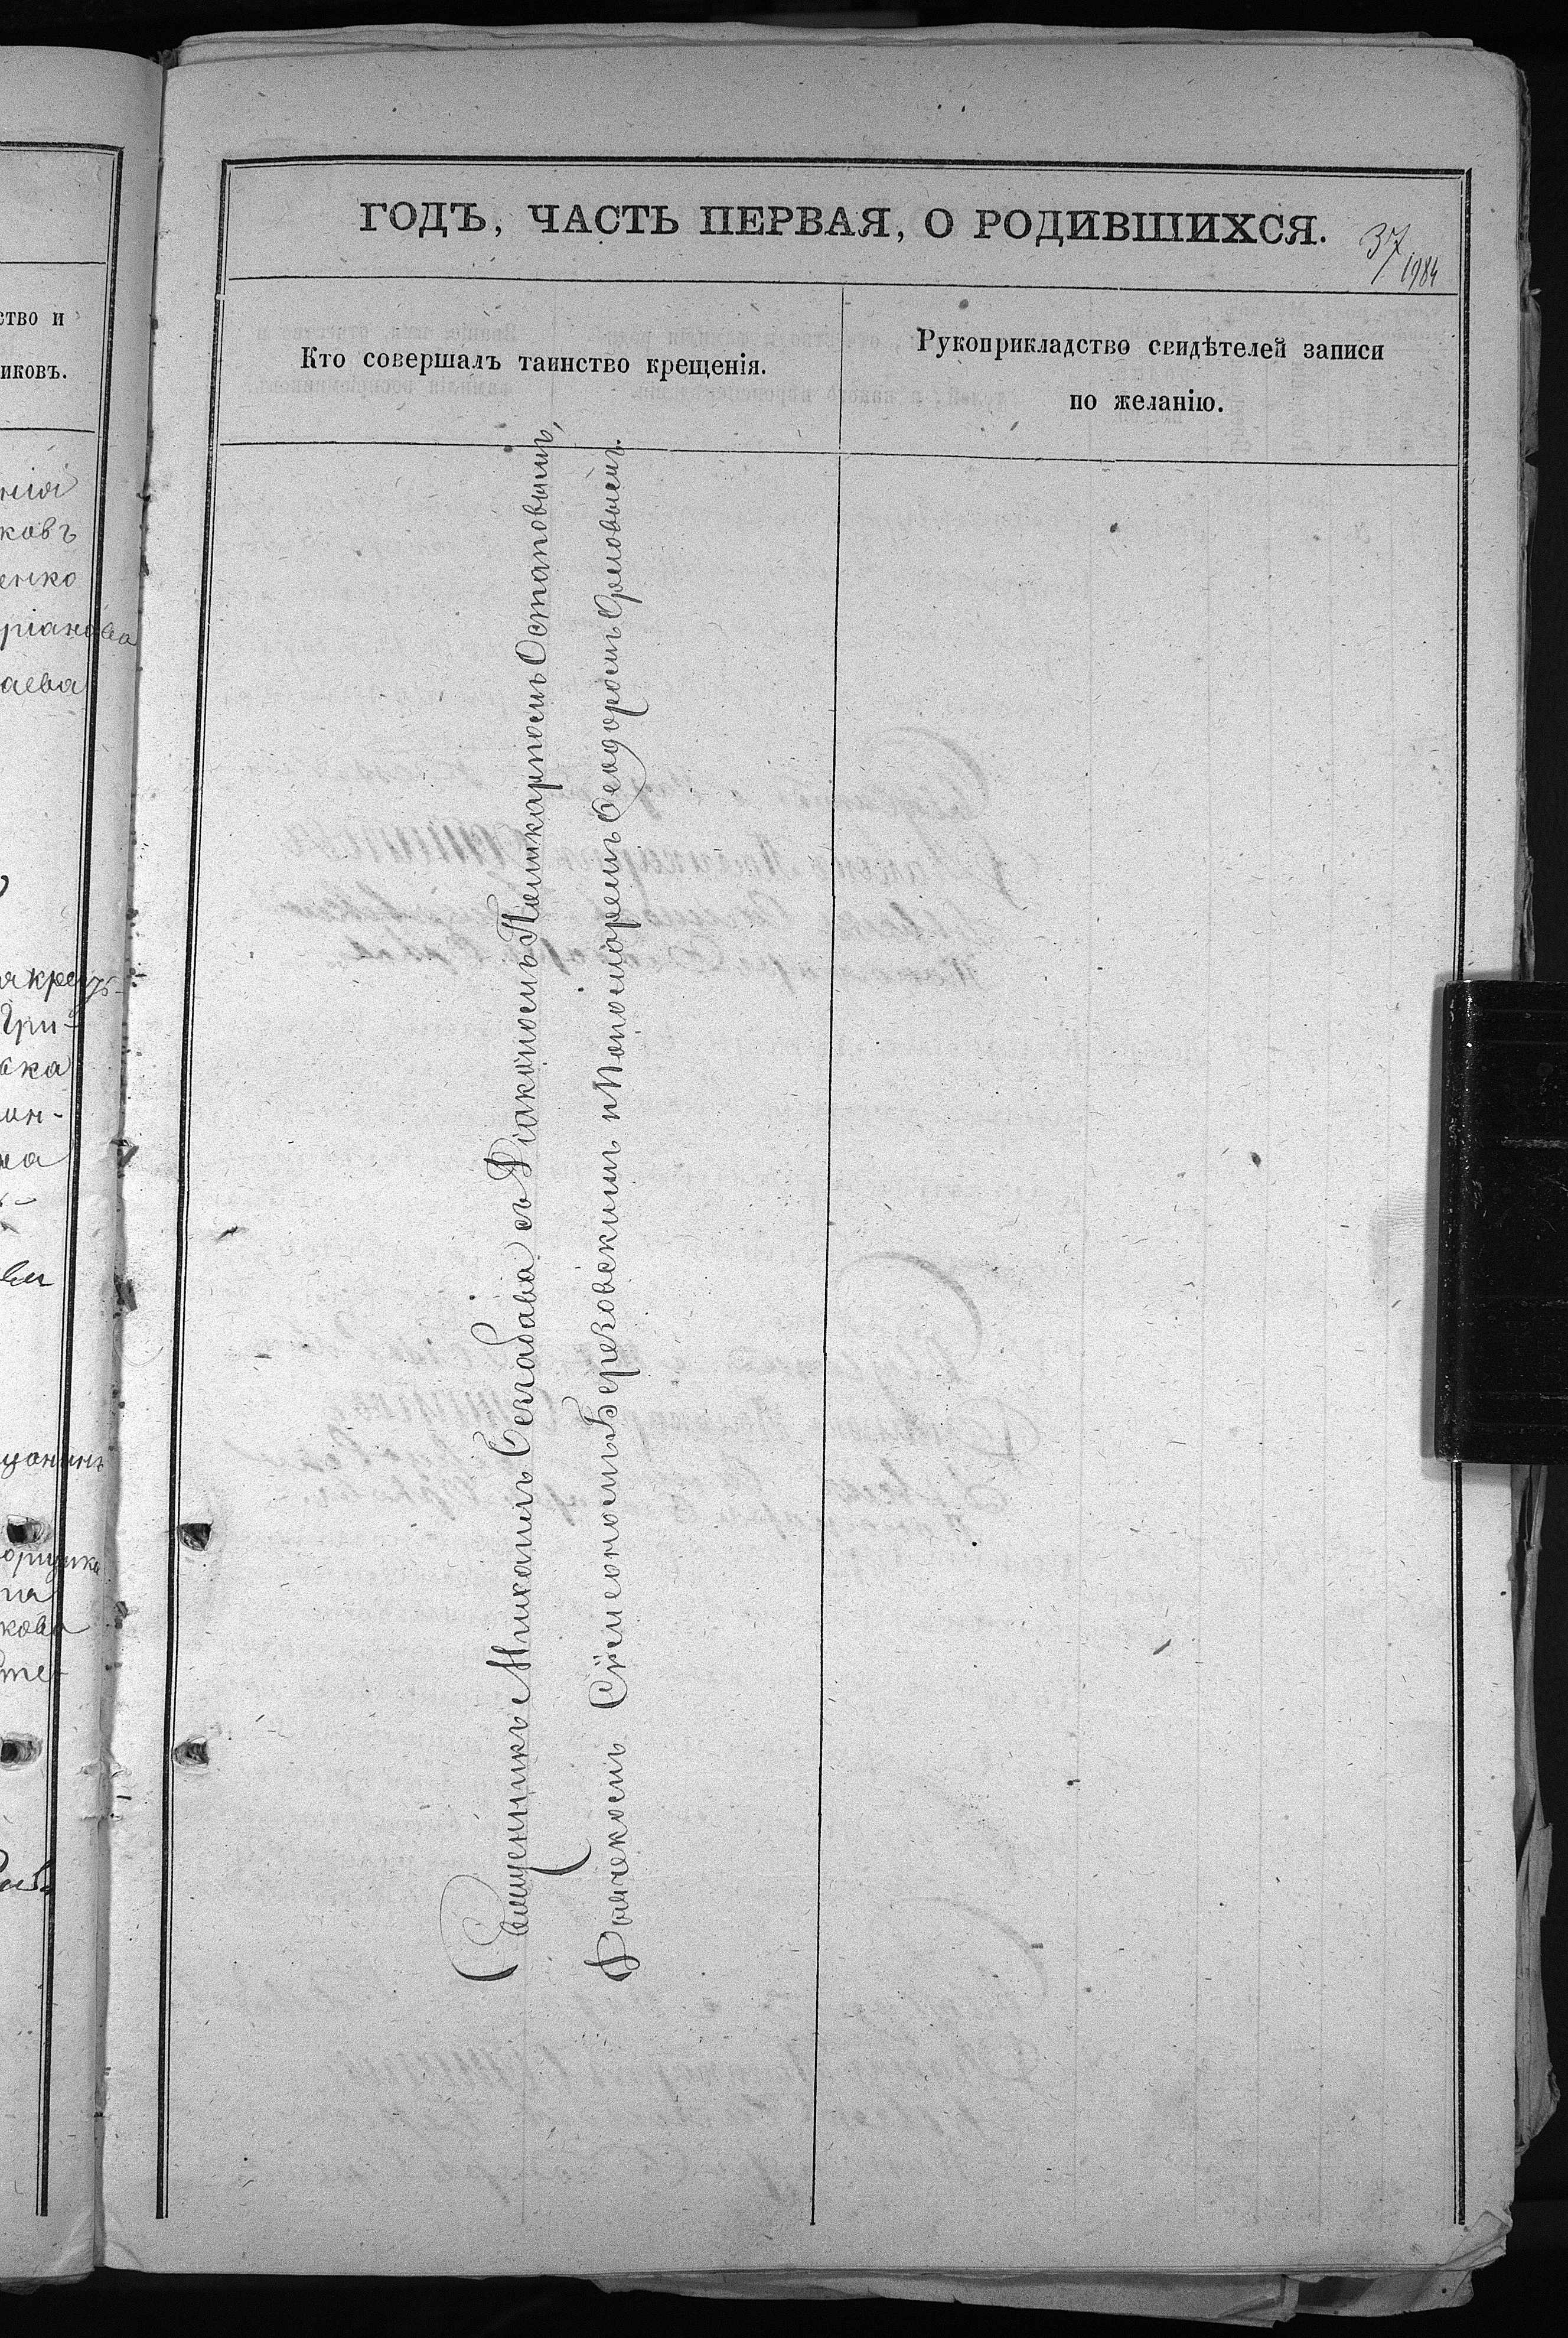 ство и
иковъ.
нія
ковъ
енко
ріанова
аева
якресть-
Гри-
вка
ин-
на
оришка
на
кова
ГОДЪ, ЧАСТЬ ПЕРВАЯ, О РОДИВШИХСЯ.
37
1984
Кто совершалъ таинство крещенія.
Рукоприкладство свидѣтелей записи
по желанію.
Священникъ Михаилъ Сезгабава съ Діакономъ Поликарпомъ Остаповымъ,
Дьячкомъ Сѵмеономъ Березовскимъ и Пономаремъ Ѳеодоромъ Орловымъ.